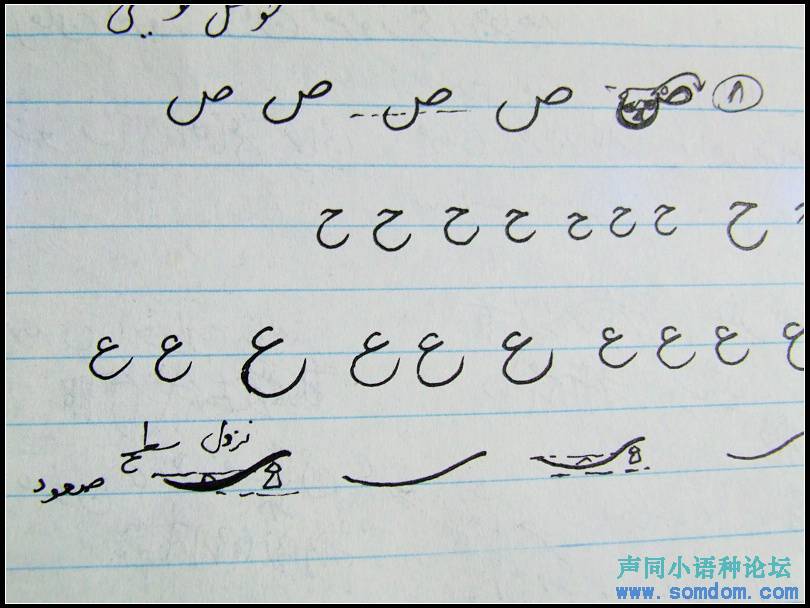 ۸ ص ص ص ص ص
ح ح ح ح ح ح ح ح
ع ع ع ع ع ع ع ع ع ع
نزول سطح
صعود
声同小语种论坛
www.somdom.com